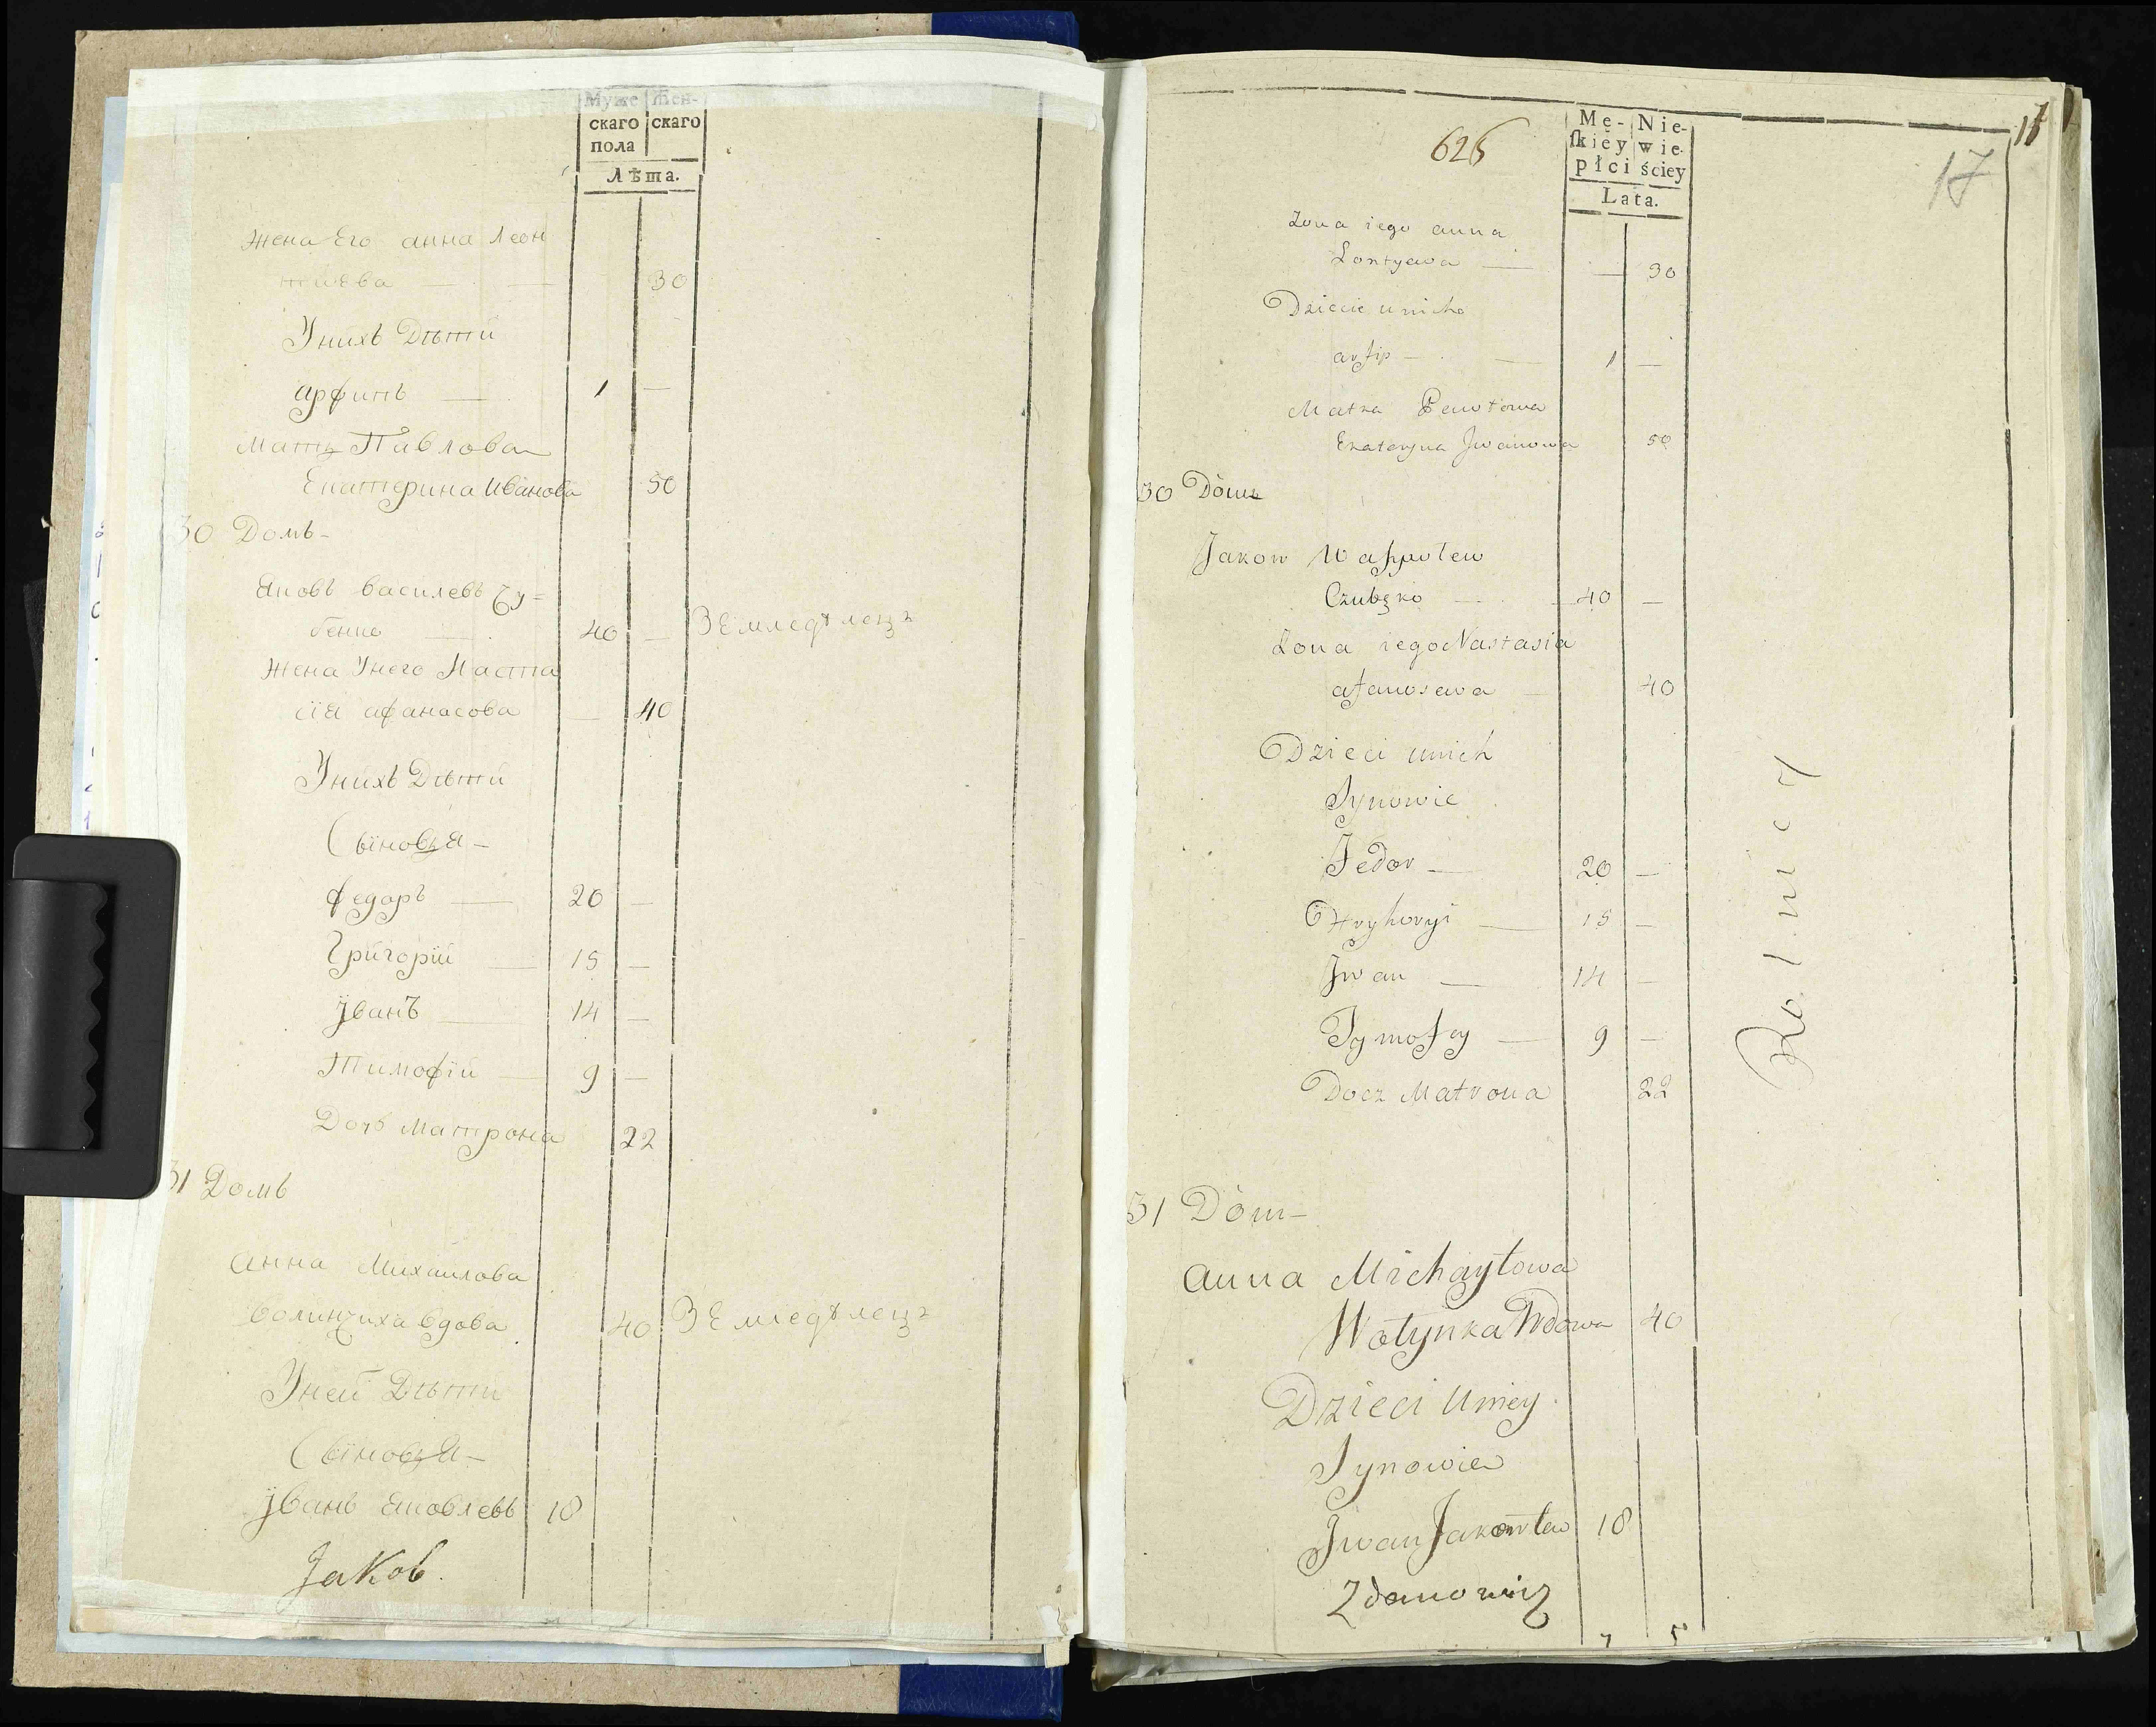 Муже жен-
скаго скаго
пола
Лѣта.
Жена Его анна Леон
тиева — — 30
Унихъ Дѣтти
арфипъ — 1 —
Мать Павлова
Екатерина Иванова 50
30 Домъ-
Яковъ василевъ Чу-
бенко — 40 — ЗЕмледѣлецъ
Жена Унего Наста
сїя афанасова — 40
Унихъ Дѣтти
Сыновья-
федаръ — 20 —
Григорїй — 15 —
Ӱванъ — 14 —
Тимофїй — 9 —
Дочь Матрона 22
31 Домъ
анна Михаилова
Волинчиха вдова 40 ЗЕмледѣлецъ
Уней Дѣтти
Сыновья-
Ӱванъ Яковлевъ 18
JaKob.
626
Mę- Nie-
ſkiéy wie-
płci ściey
Lata.
17
Zona iego anna
Lontyewa — — 30
Dziecie unich
arfip — — 1 —
Matka Pawłowa
Ekateryna Jwanowa 50
30 Dòm
Jakow Wasyulew
Czubęko — 40 —
Zona iego Nastasia
afanasewa — 40
Dzieci unich
Synowie
Fedor — 20 —
Hryhoryi — 15 —
Jwan — 14 —
Tymofey — 9 —
Docz Matrona 22
Rolnicy
31 Dòm-
anna Michayłowa
Wołynka Wdowa 40
Dzieci Uniey
Synowie
Jwan Jakowlew 18
Zdanowicz
7 5